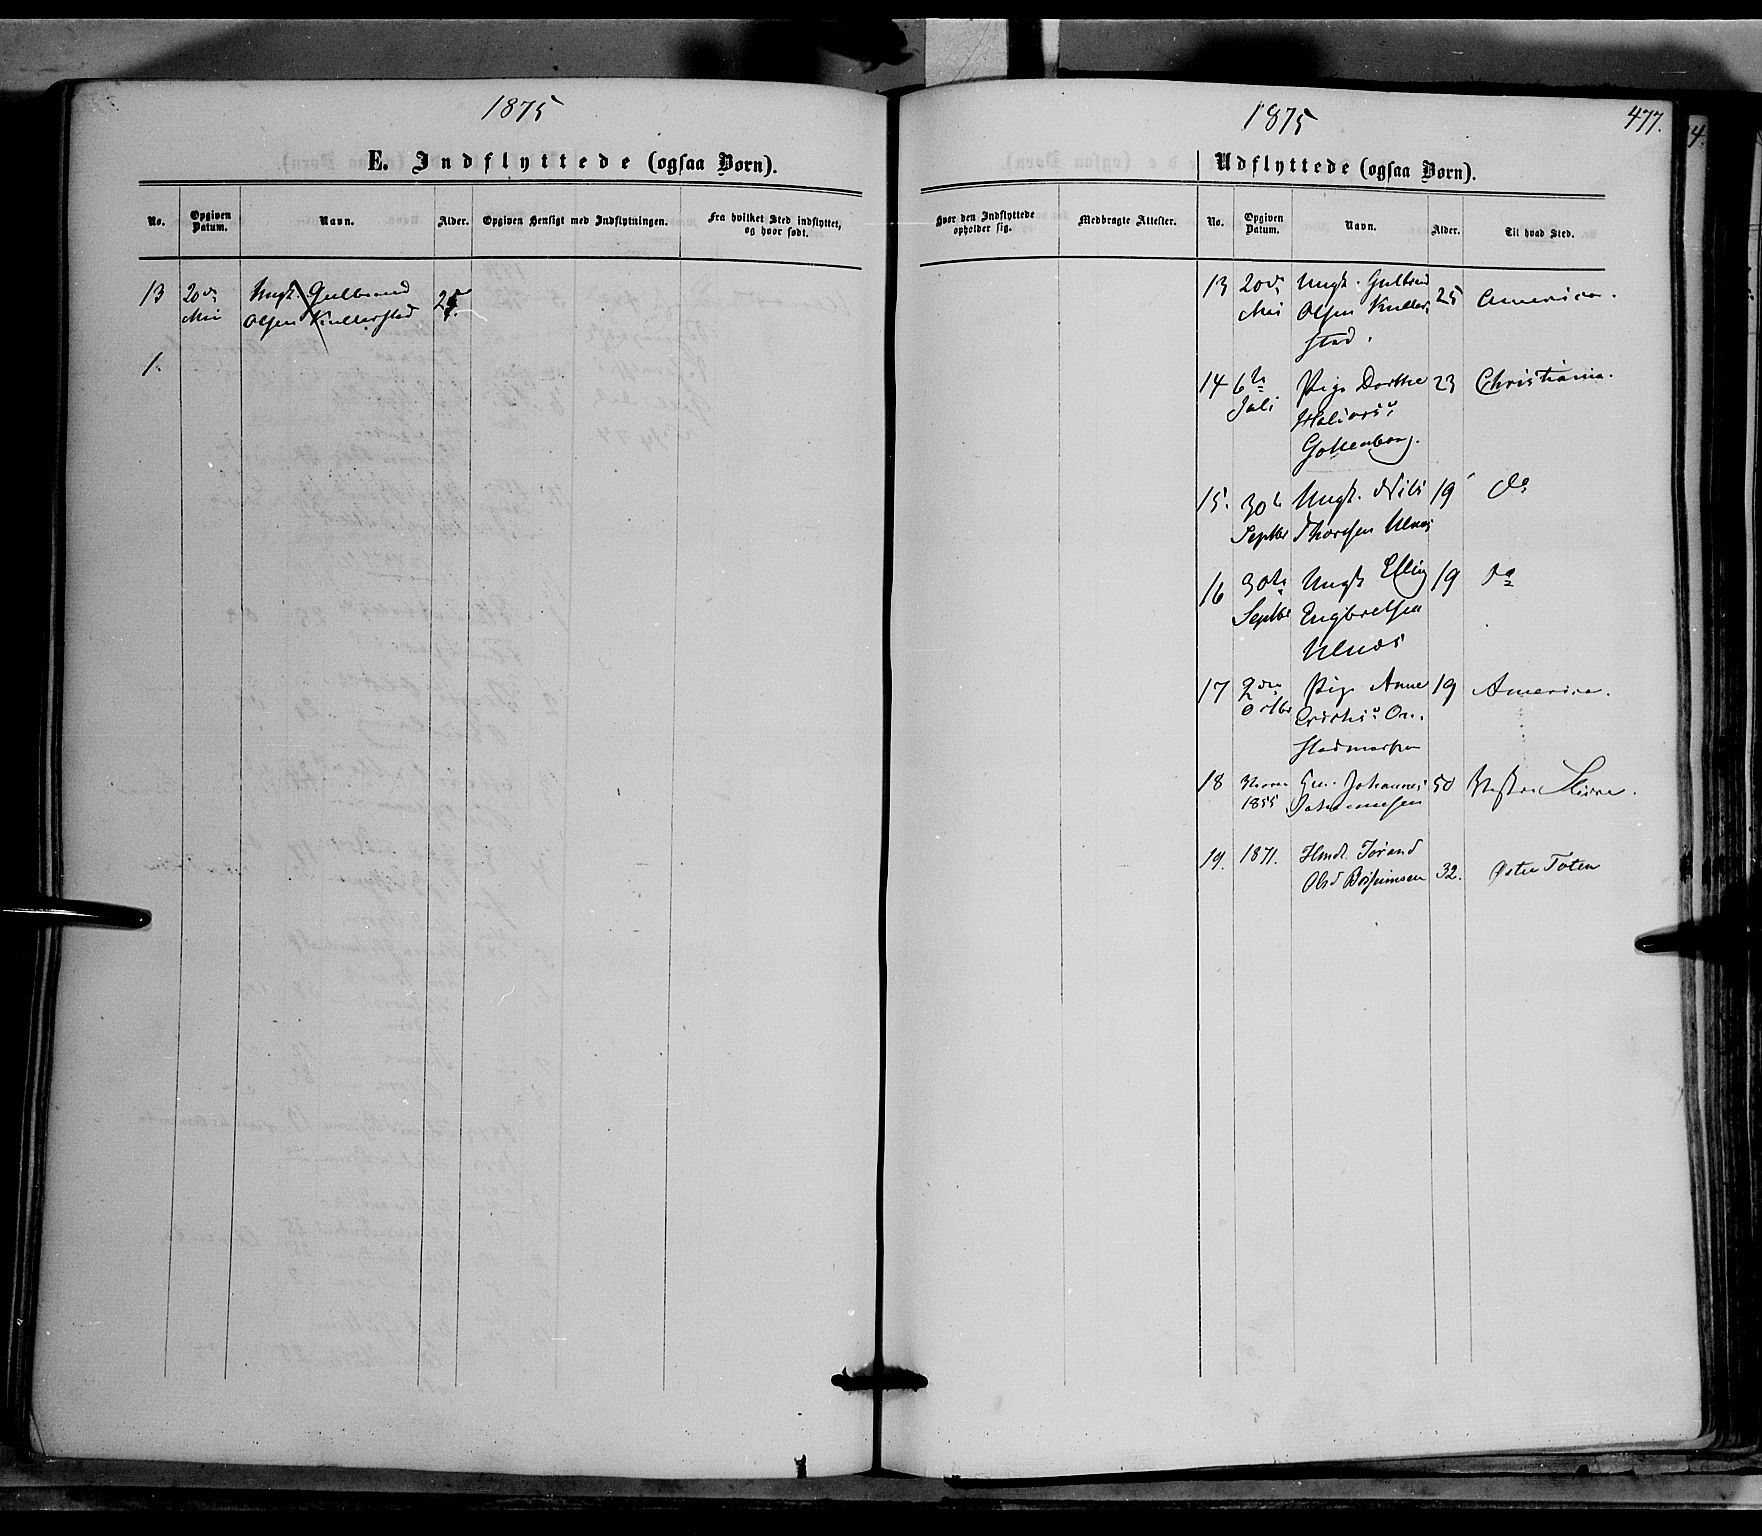 1875
E. Indflyttede (ogsaa Børn).
No. Opgiven Datum. Navn. Alder. Opgiven Hensigt med Indflytningen. Fra hvilket Sted indflyttet, og hvor født.
13 20de Ungk. Gulbrand 25
Mai Olsen Kullerstad
1.
1875
477.
Udflyttede (ogsaa Børn).
Hvor den Indflyttede opholder sig. Medbragte Attester. No. Opgiven Datum. Navn. Alder. Til hvad Sted.
13 20de Ungk. Gulbrand 25 America.
Mai Olsen Kuller-
stad.
14 6te Pige Dorthe 23 Christiania.
Juli Halvorsd
15. 30te Ungk. Nils 19 do
Septbr Thoresen Ulnæs
16 30te Ungk Elling 19 do
Septbr Engbretsen
Ulnæs
17 2den Pige Anne 19 America.
Octbr
18 Johannes 50 Vestre Slidre.
1855 Johannesen
19. 1871. Jörand
Olsd 32. Østre Toten
4.